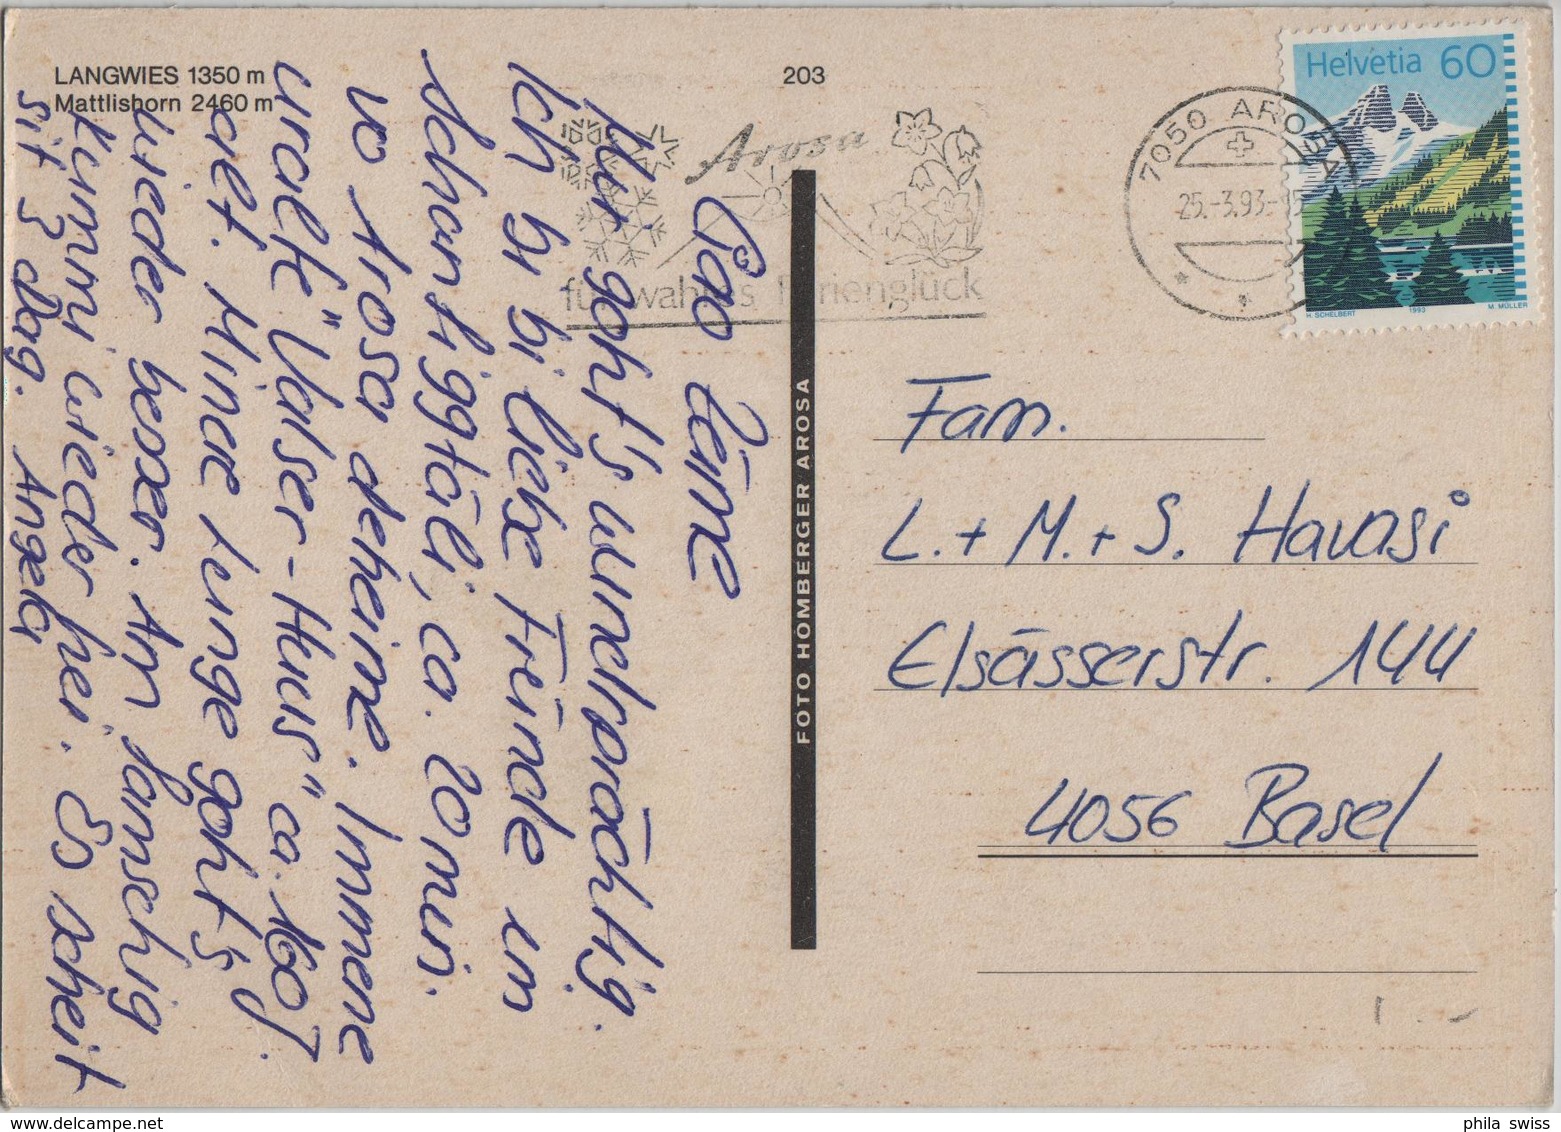 LANGWIES 1350 m
Mattlishorn 2460 m
203
Arosa
für wahres Ferienglück
7050 AROSA
25.-3.93-15
Helvetia 60
H. SCHELBERT 1993 M. MÜLLER
FOTO HOMBERGER AROSA
Ciao zäme
Mir goht's wundrprächtig.
Ich bi bi liebe Fründe im
Schanfiggtäli, ca. 20 min.
vo Arosa deheime. Imene
uralte "Valser-Huus" ca. 160 J.
alt. Minere Lunge goht's
wieder besser. Am Samschtig
kumm i wieder hei. Es scheit
sit 3 Dag. Angela
Fam.
L. + M. + S. Havasi
Elsässerstr. 144
4056 Basel
phila swiss